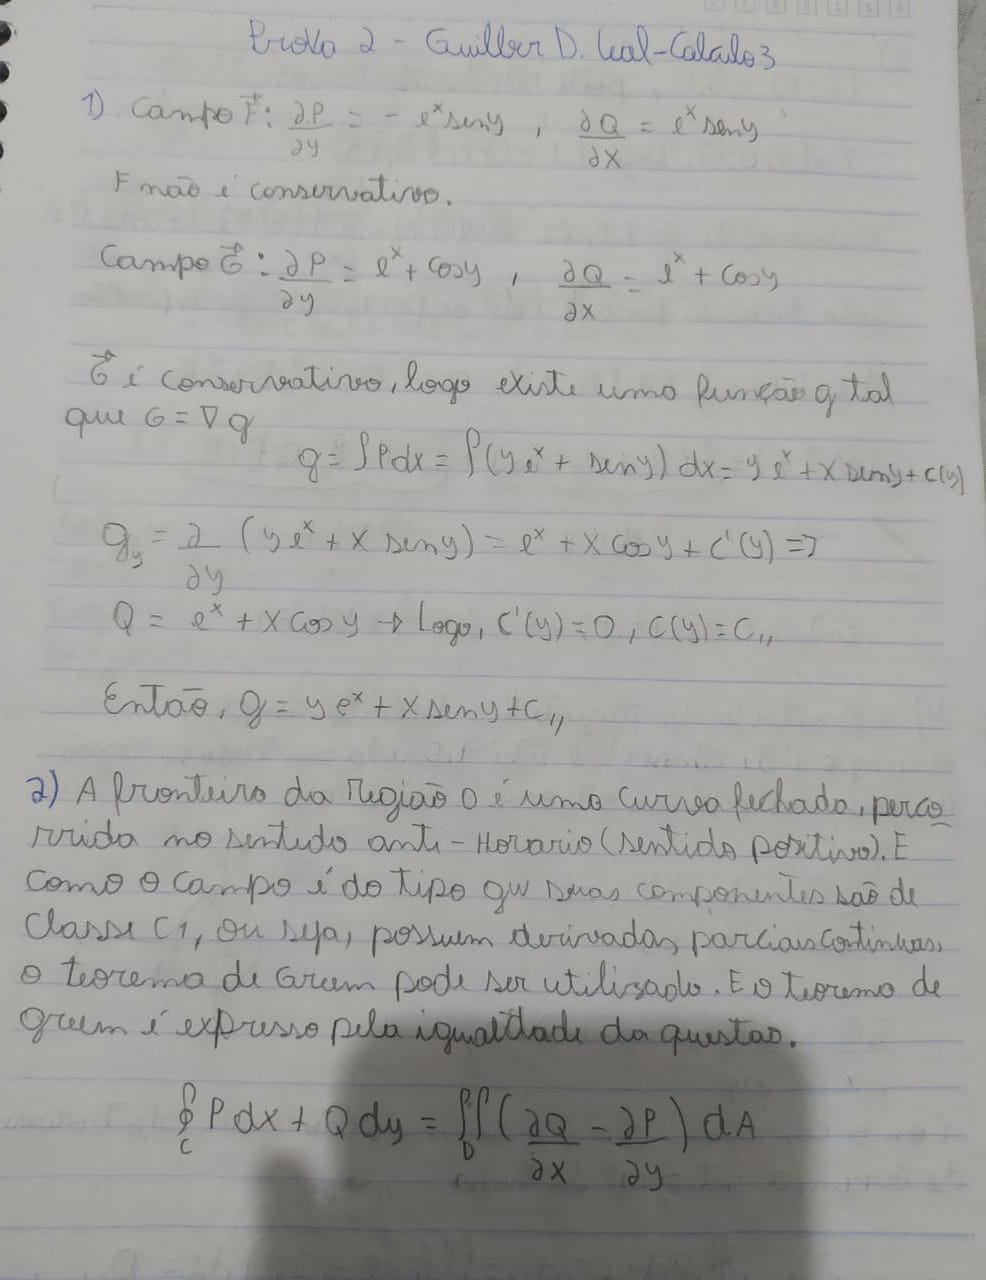 Prova 2 - Guilber D. Leal - Calculo 3
1) Campo F⃗: ∂P/∂y = - eˣ seny , ∂Q/∂x = eˣ seny
F não é conservativo.
Campo G⃗: ∂P/∂y = eˣ + cosy , ∂Q/∂x = eˣ + cosy
G⃗ é conservativo, logo existe uma função g tal
que G = ∇g
g = ∫Pdx = ∫(yeˣ + seny) dx = yeˣ + x seny + c(y)
g_y = ∂/∂y (yeˣ + x seny) = eˣ + x cosy + c'(y) =>
Q = eˣ + x cosy → Logo, c'(y) = 0, c(y) = C,,
Então, g = yeˣ + x seny + C,,
2) A fronteira da Região D é uma curva fechada, perco
rrida no sentido anti-Horario (sentido positivo). E
como o campo é do tipo qu suas componentes são de
classe C1, ou seja, possuem derivadas parciais continuas,
o teorema de Green pode ser utilizado. E o teorema de
green é expresso pela igualdade da questao.
∮_C Pdx + Qdy = ∬_D (∂Q/∂x - ∂P/∂y) dA